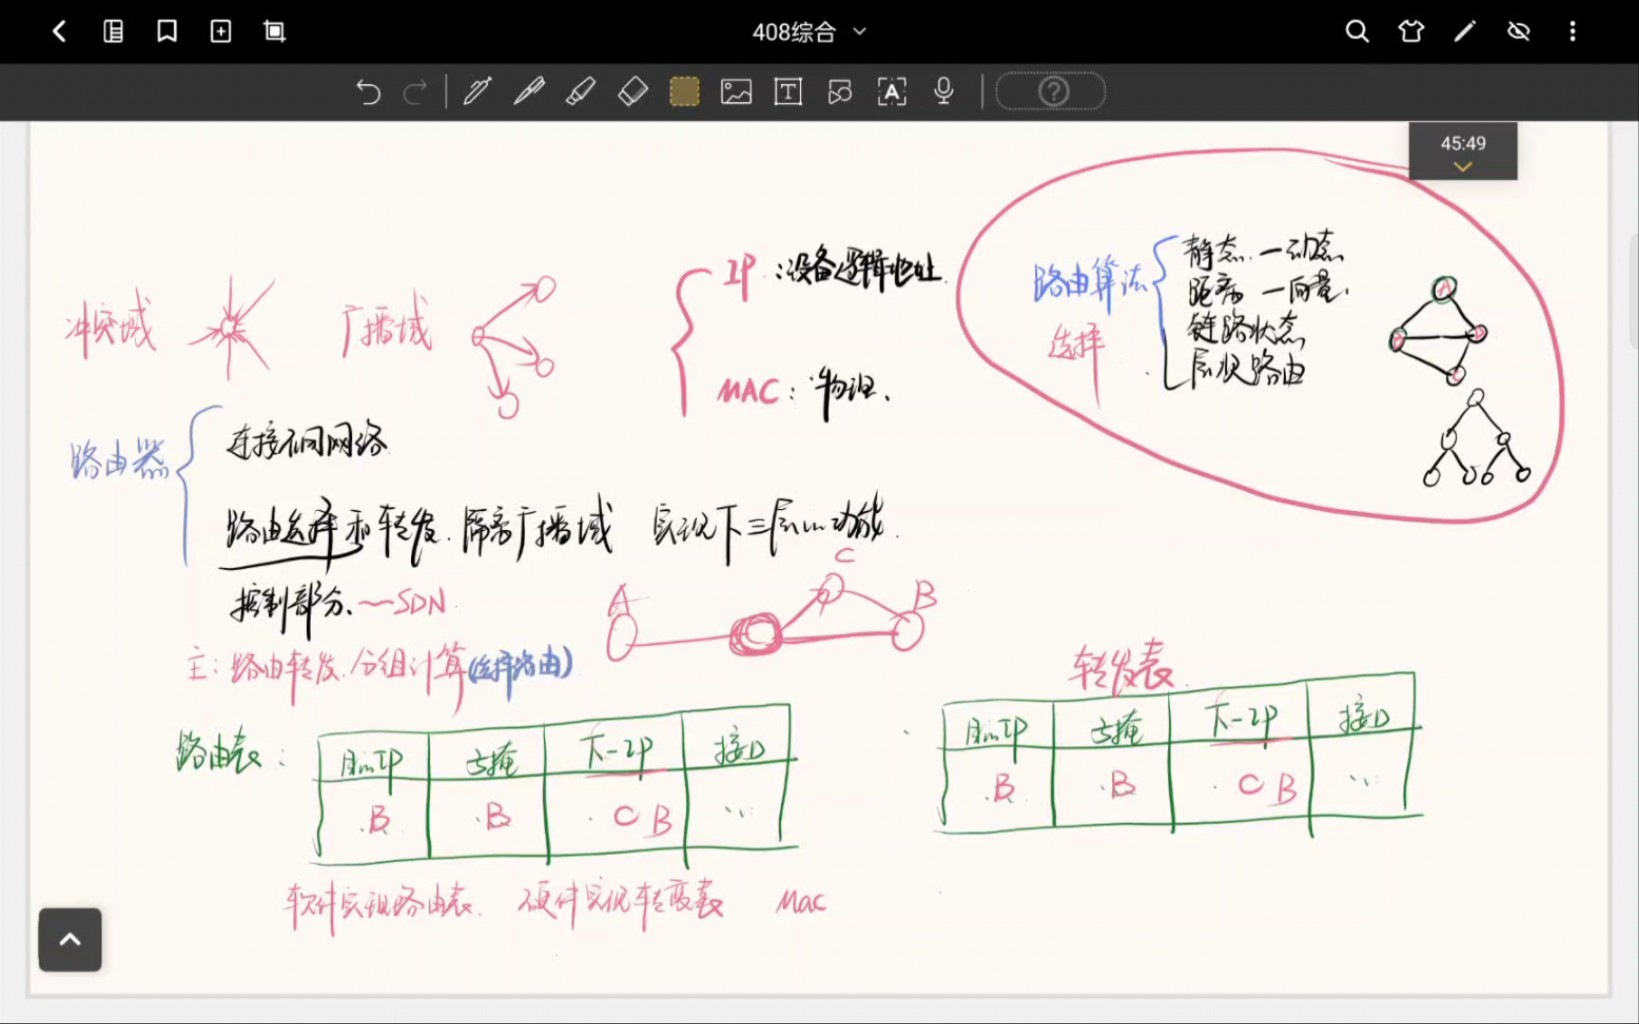 408综合
45:49
冲突域
广播域
IP：设备逻辑地址
MAC：物理.
路由算法
选择
静态.—动态
距离—向量.
链路状态
层次路由
A
路由器
连接不同网络
路由选择和转发.隔离广播域 实现下三层的功能.
控制部分.—SDN
A
C
B
主:路由转发.分组计算(选择路由)
路由表：
目的IP 子掩 下一IP 接口
B B C B ...
转发表
目的IP 子掩 下一IP 接口
B B C B ...
软件实现路由表. 硬件实现转发表 Mac